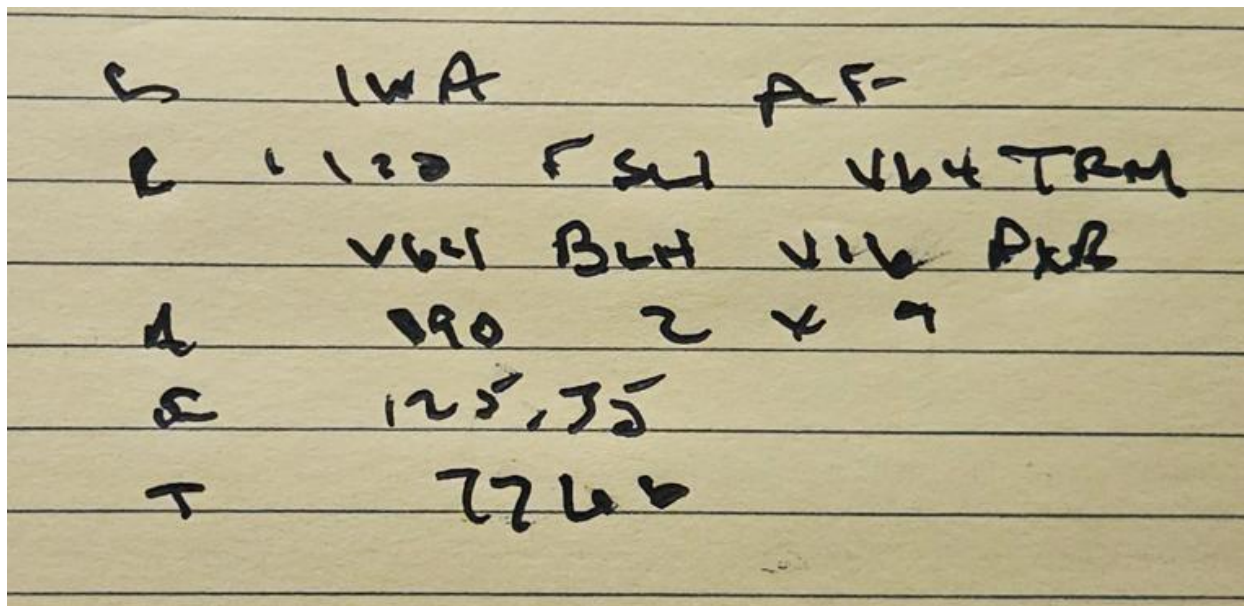 C IWA AF
R 120 F SLI V64 TRM
V64 BLH V16 PXR
A 2 X 9
F 125.35
T 7746